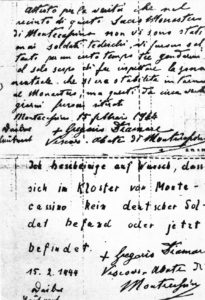 Attesto per la verità che nel
recinto di questo Sacro Monastero
di Montecassino non vi sono stati
mai soldati tedeschi; vi furono sol
tanto per un certo tempo tre gendarmi
al solo scopo di far rispettare la zona
neutrale che si era stabilita in torno
al Monastero; ma questi da circa venti
giorni furono ritirati
Montecassino 15 febbraio 1944
+ Gregorio Diamare
Vescovo-Abate di Montecassino
Deiber
Leutnant
Ich bescheinige auf Wunsch, dass
sich im Kloster von Monte-
cassino kein deutscher Sol-
dat befand oder jetzt
befindet.
+ Gregorio Diamare
15. 2. 1944
Vescovo-Abate di
Deiber
Montecassino